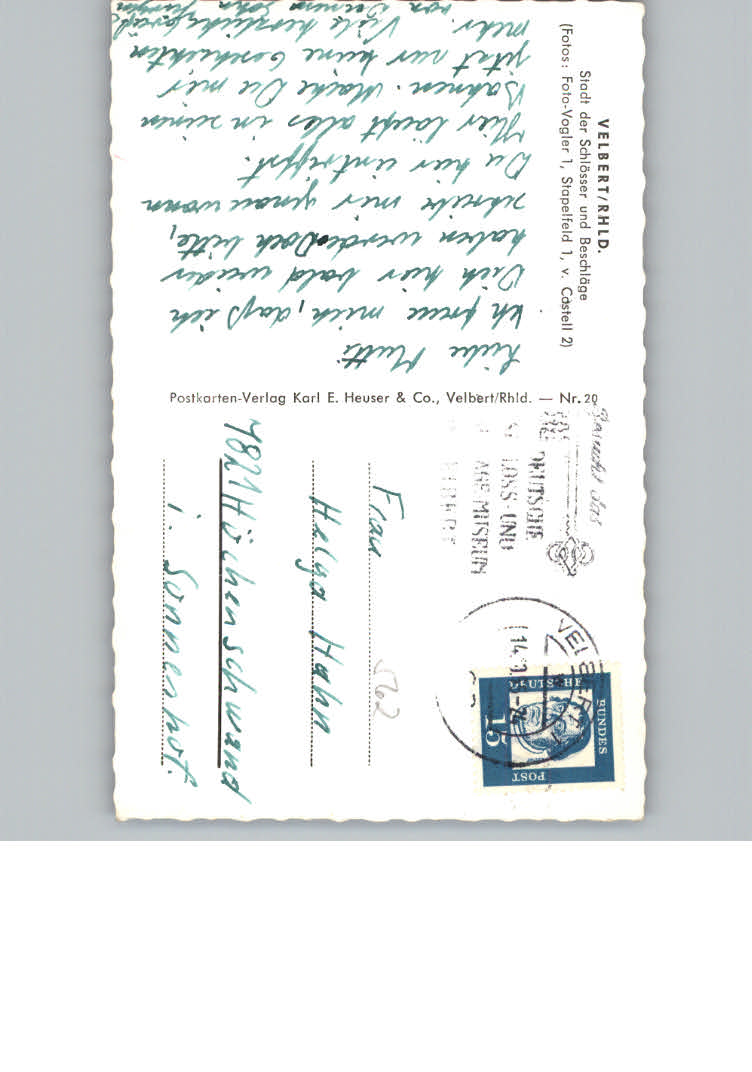 VELBERT/RHLD.
Stadt der Schlösser und Beschläge
(Fotos: Foto-Vogler 1, Stapelfeld 1, v. Castell 2)
Liebe Mutti
Ich freue mich, dass ich
Dich hier bald wieder
haben werde. Doch bitte,
schreibe mir genau wann
Du hier eintriffst.
Hier läuft alles in seinen
Bahnen. Mache Du mir
jetzt nur keine Geschichten
mehr. Viele herzliche Grüße
von Deinem Sohn Jürgen
Postkarten-Verlag Karl E. Heuser & Co., Velbert/Rhld. — Nr. 20
Besuchet das
DEUTSCHE
SCHLOSS- UND
BESCHLÄGEMUSEUM
VELBERT
VELBERT
14.9.
DEUTSCHE
BUNDES
POST
15
562
Frau
Helga Hahn
7821 Höchenschwand
i. Sonnenhof.